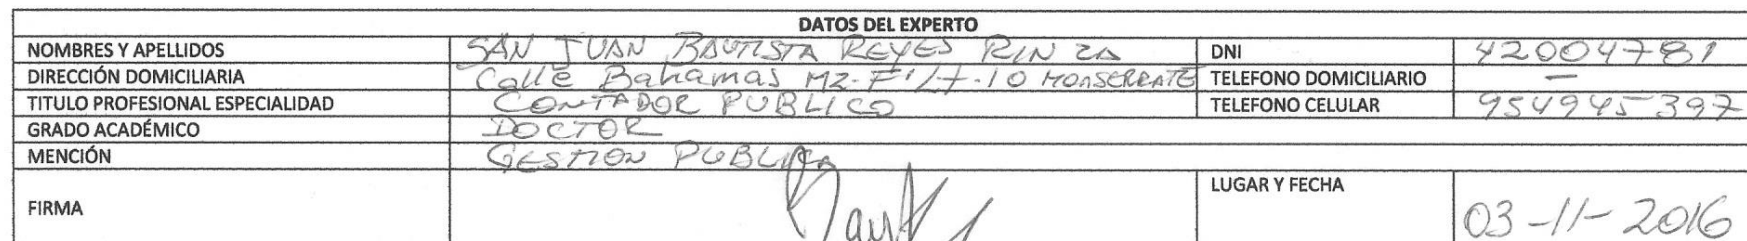 DATOS DEL EXPERTO
NOMBRES Y APELLIDOS SAN JUAN BAUTISTA REYES RINZA DNI 42004781
DIRECCIÓN DOMICILIARIA Calle Bahamas MZ-F'/Lt-10 MONSERRATE TELEFONO DOMICILIARIO —
TITULO PROFESIONAL ESPECIALIDAD CONTADOR PUBLICO TELEFONO CELULAR 954945397
GRADO ACADÉMICO DOCTOR
MENCIÓN GESTION PUBLICA
FIRMA LUGAR Y FECHA 03-11-2016